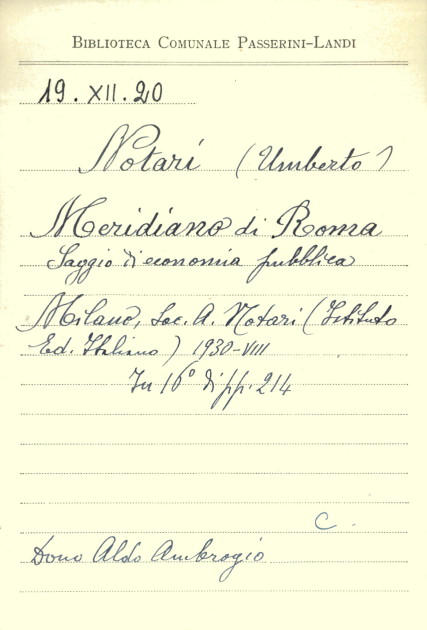 BIBLIOTECA COMUNALE PASSERINI-LANDI
19.XII.20
Notari (Umberto)
Meridiano di Roma
Saggio di economia pubblica
Milano, Soc. A. Notari (Istituto
Ed. Italiano) 1930-VIII
In 16° di pp. 214
C.
Dono Aldo Ambrogio